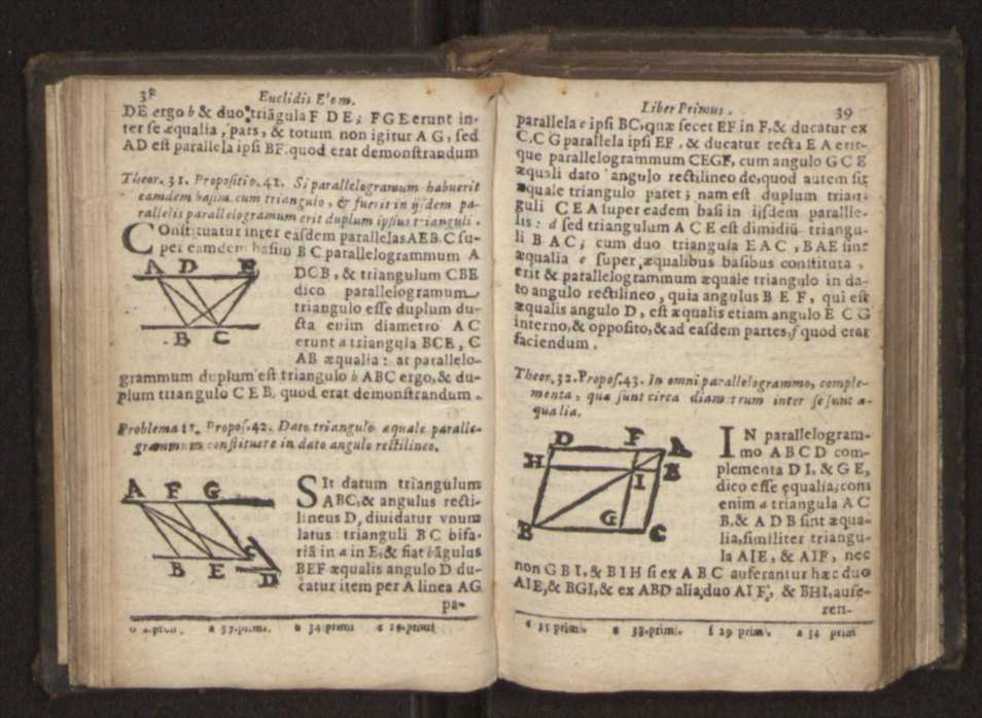 38
Euclidis Elem.
DE ergo b & duo triãgula F DE; FGE erunt in-
ter se æqualia, pars, & totum non igitur A G, sed
AD est parallela ipsi BF. quod erat demonstrandum
Theor. 31. Propositio. 41. Si parallelogramum habuerit
eamdem basim cum triangulo, & fuerit in ijsdem pa-
rallelis parallelogramum erit duplum ipsius trianguli.
COnstituatur inter easdem parallelas AEB C su-
per eamdem basim B C parallelogrammum A
DCB, & triangulum CBE
dico parallelogramum
triangulo esse duplum du-
cta enim diametro A C
erunt a triangula BCE, C
AB æqualia: at parallelo-
grammum duplum est triangulo b ABC ergo, & du-
plum triangulo C E B. quod erat demonstrandum.
A D E
B C
Problema 11. Propos. 42. Dato triangulo æquale paralle-
grammum constituere in dato angulo rectilineo.
SIt datum triangulum
ABC, & angulus recti-
lineus D, diuidatur vnum
latus trianguli BC bifa-
riã in a in E, & fiat b ãgulus
BEF æqualis angulo D du-
catur item per A linea AG
pa-
A F G
B E C D
a 37. primi. b 34 primi
Liber Primus.
39
parallela c ipsi BC, quæ secet EF in F, & ducatur ex
C. C G parallela ipsi EF. & ducatur recta E A erit-
que parallelogrammum CEGF, cum angulo G C E
æquali dato angulo rectilineo de, quod autem sit
æquale triangulo patet; nam est duplum trian-
guli C E A super eadem basi in ijsdem paralle-
lis: d sed triangulum A C E est dimidiũ triangu-
li B A C; cum duo triangula E A C, BAE sint
æqualia e super æqualibus basibus constituta,
erit & parallelogrammum æquale triangulo in da-
to angulo rectilineo, quia angulus B E F, qui est
æqualis angulo D, est æqualis etiam angulo E C G
interno, & opposito, & ad easdem partes, f quod erat
faciendum.
Theor. 32. Propos. 43. In omni parallelogrammo, comple-
menta, quæ sunt circa diametrum inter se sunt æ-
qualia.
D F A
H E
I
G
B C
IN parallelogram-
mo A B C D com-
plementa D I, & G E,
dico esse ęqualia; cum
enim a triangula A C
B, & A D B sint æqua-
lia, similiter triangu-
la AIE, & AIF, nec
non G B I, & B I H si ex A B C auferantur hæc duo
AIE, & BGI, & ex ABD alia, duo AI F, & BHI, aufe-
ren-
c 31 primi. e 38. primi. f 29 primi. a 34 primi